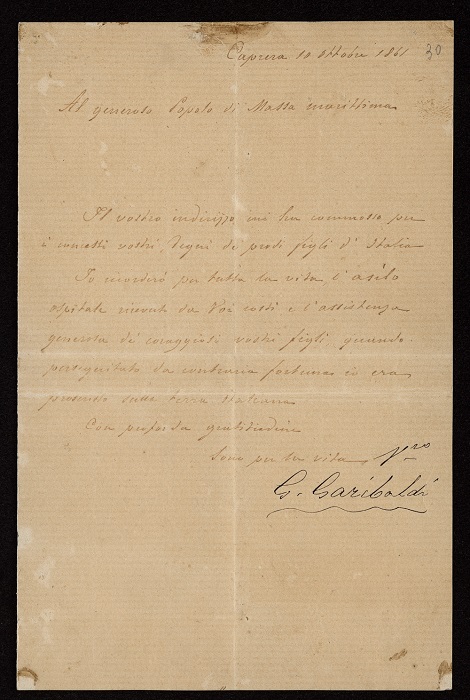 Caprera 10 Ottobre 1861
30
Al generoso Popolo di Massa marittima
Il vostro indirizzo mi ha commosso per
i concetti vostri, degni di prodi figli d'Italia
Io ricorderò per tutta la vita l'asilo
ospitale ricevuto da Voi costì e l'assistenza
generosa de' coraggiosi vostri figli, quando
perseguitato da contraria fortuna io era
proscritto sulla terra Italiana
Con profonda gratitudine
Sono per la vita Vro
G. Garibaldi